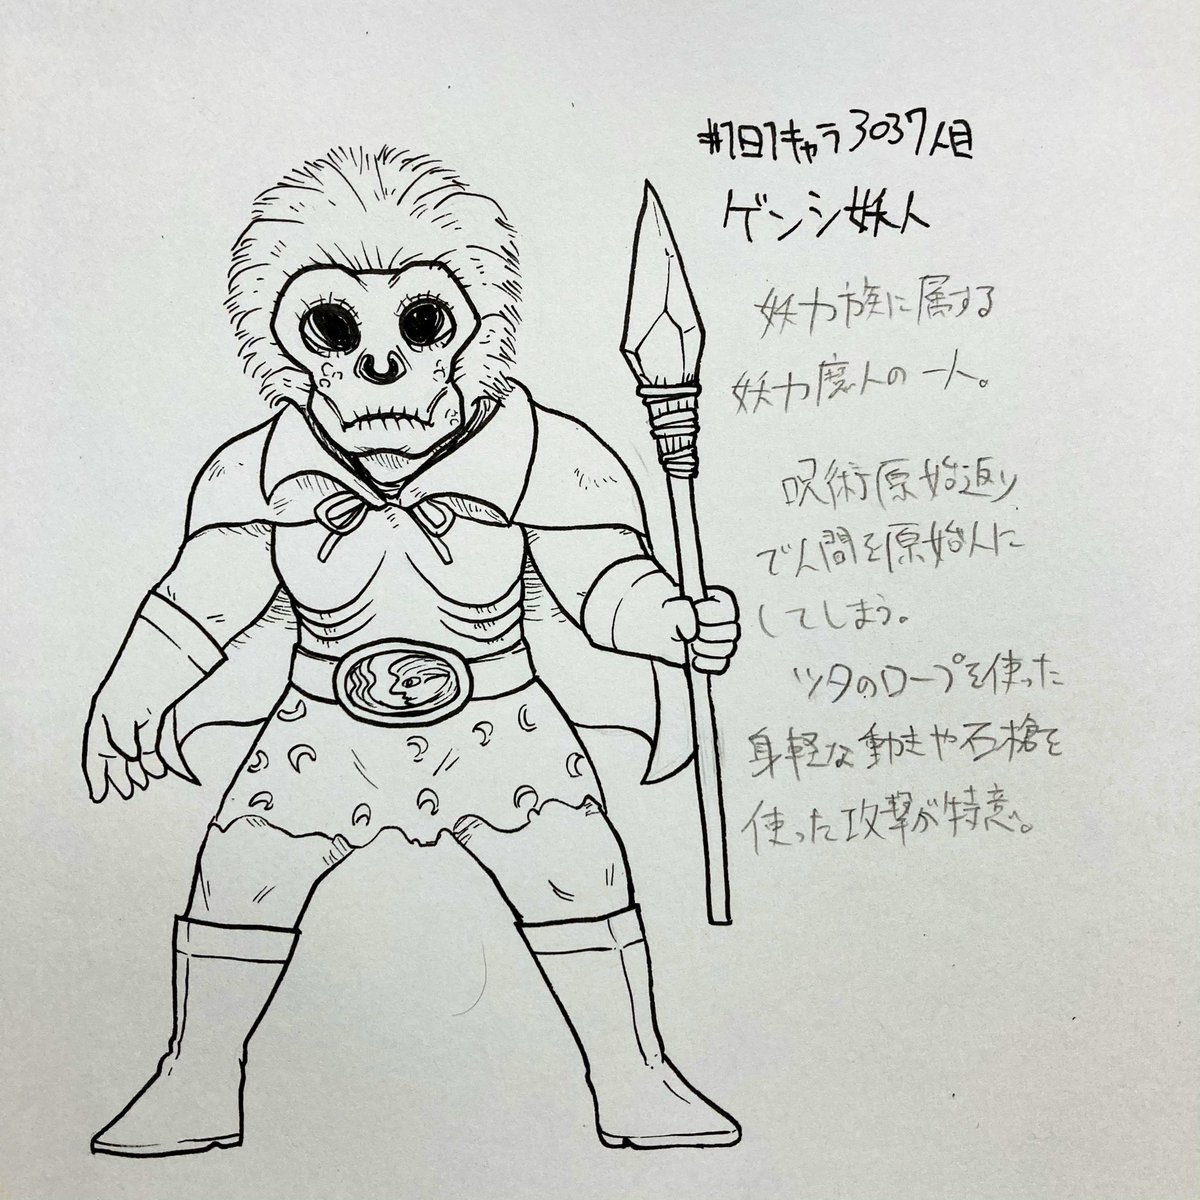 #1日1キャラ3037人目
ゲンシ妖人
妖力族に属する
妖力魔人の一人。
呪術原始返り
で人間を原始人に
してしまう。
ツタのロープを使った
身軽な動きや石槍を
使った攻撃が特意。